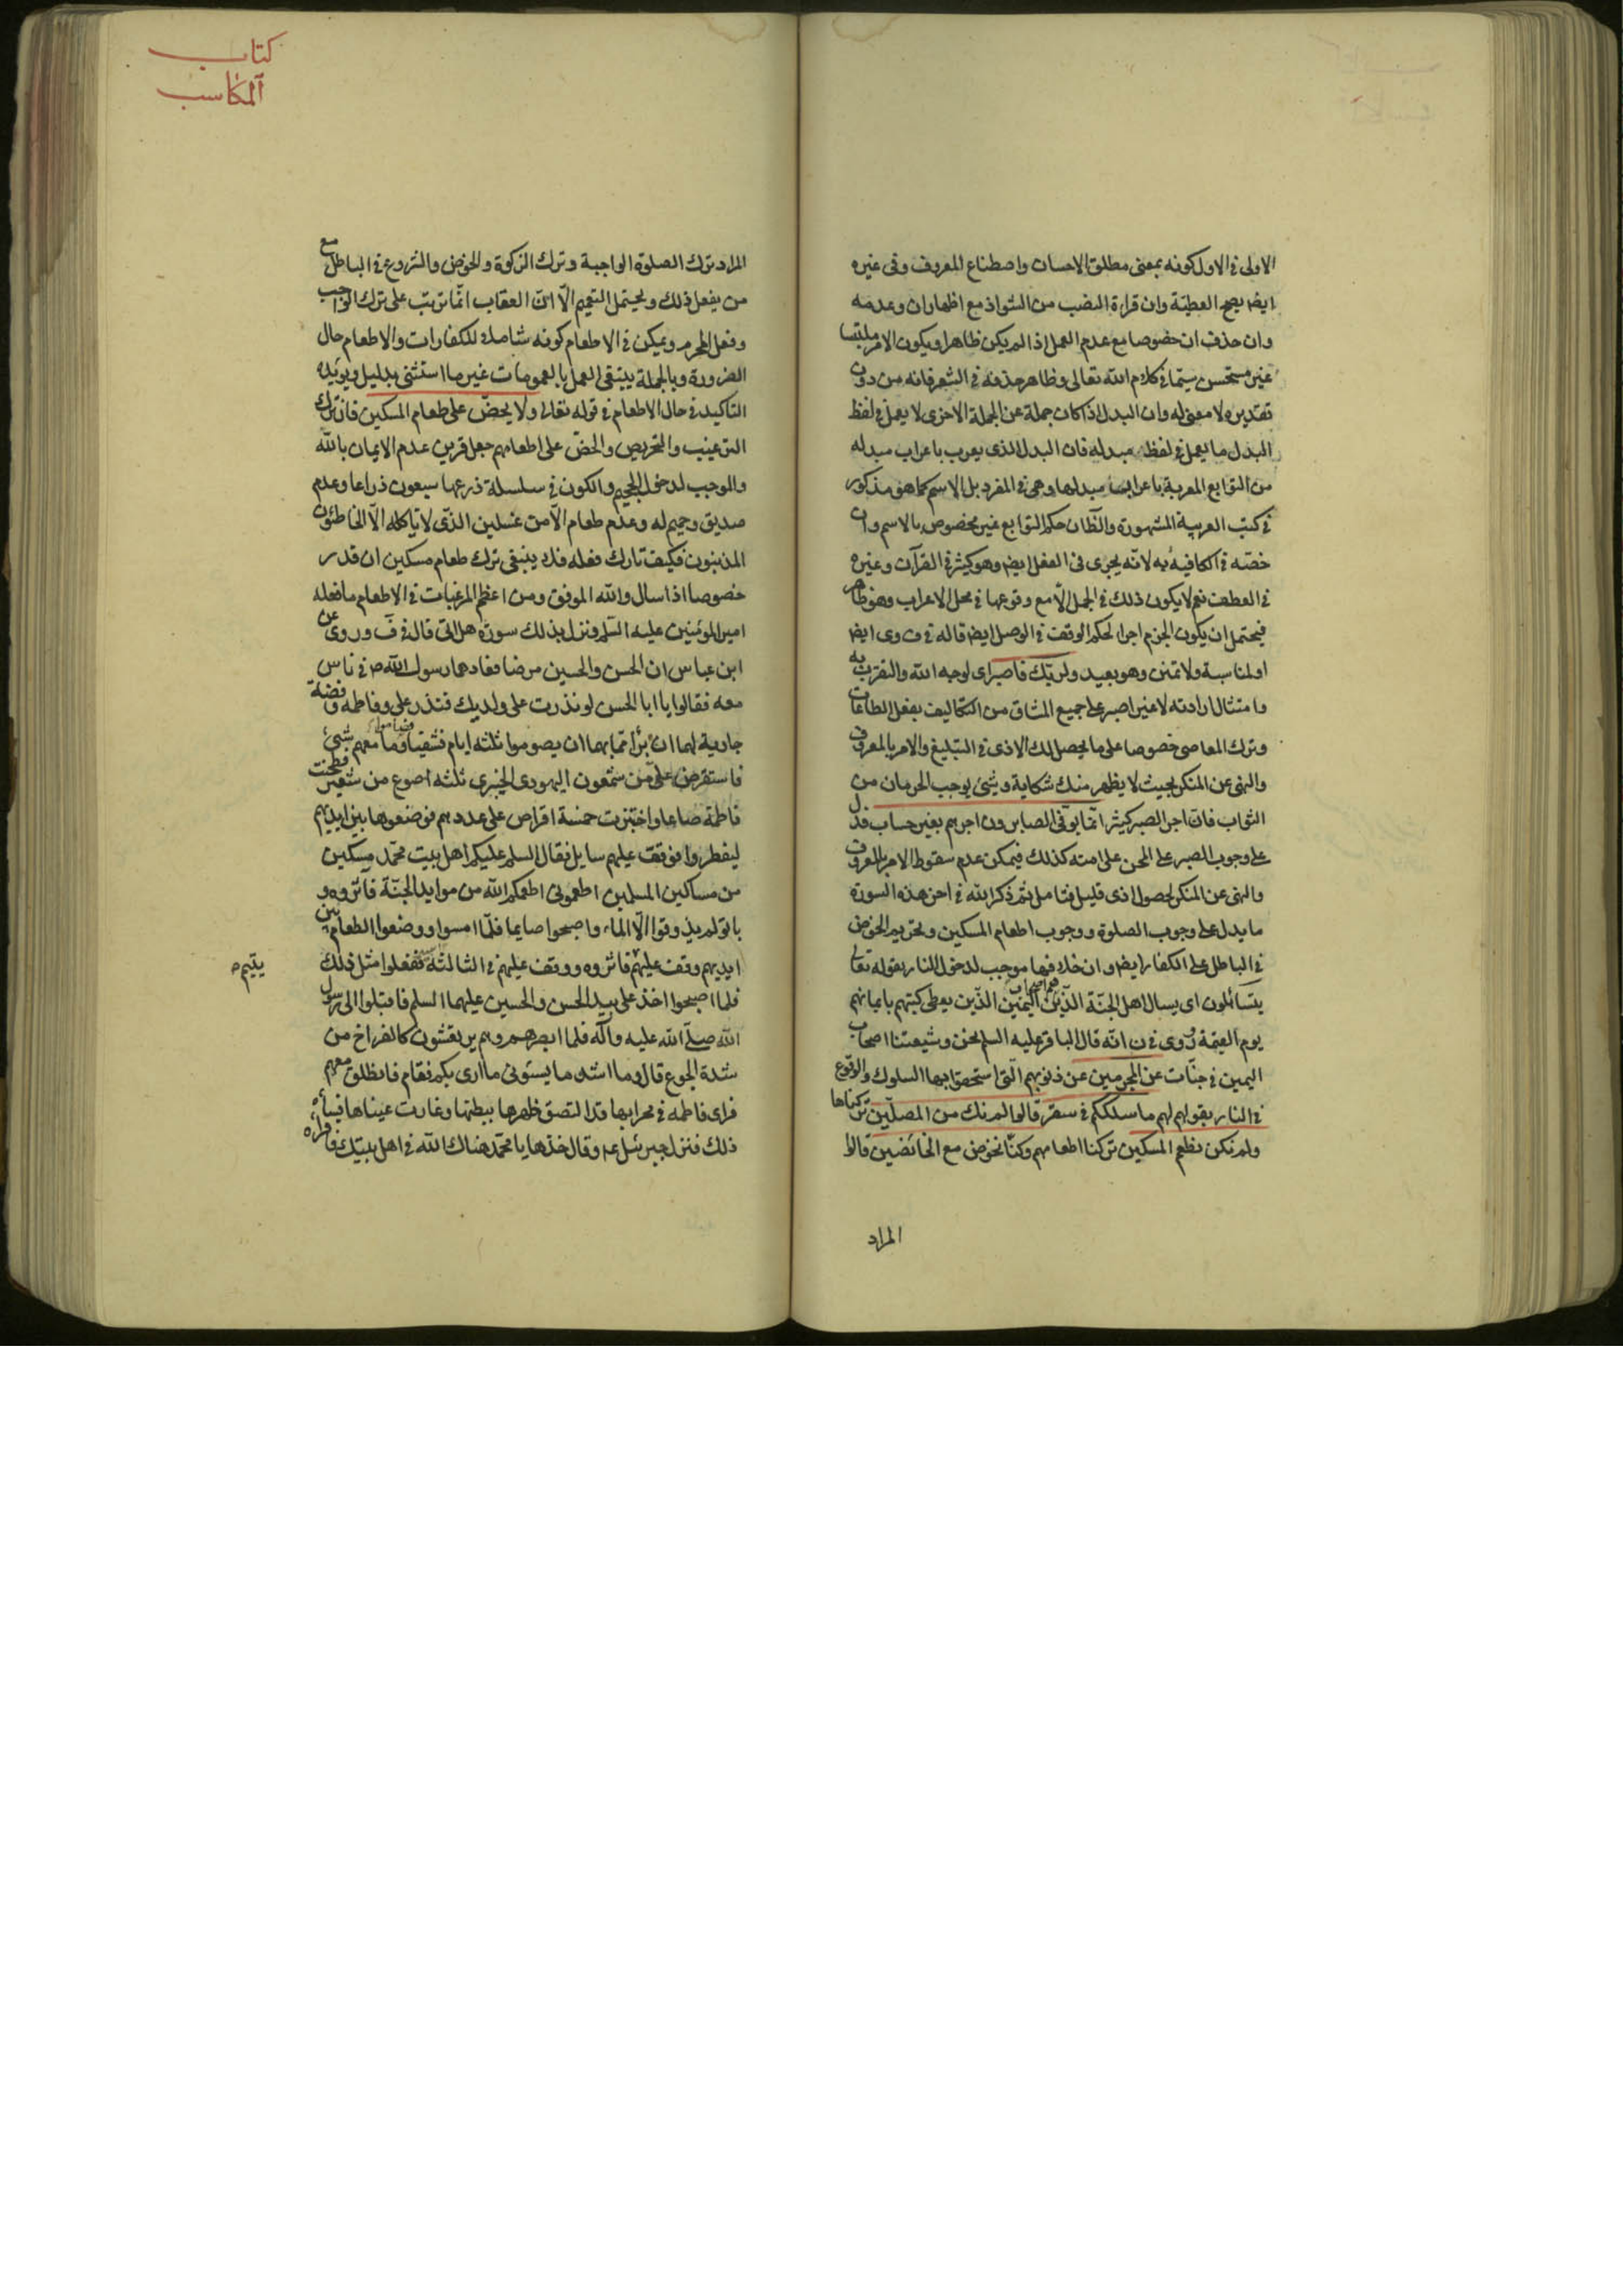 الاولى فى الاول كونه بمعنى مطلق الاحسان واصطناع المعروف وفى غيره
ايضا يصح العطية وان قراءة النصب من الشواذ مع اظهار ان وعدمه
وان حذف ان خصوصا مع عدم العمل اذا لم يكن ظاهرا ويكون الامر ملتبسا
غير مستحسن سيّما فى كلام الله تعالى وظاهر حذفه فى الشعر فانه من دون
تقديره لا معنى له وان البدل اذا كان جملة عن الجملة الاخرى لا يعمل فى لفظ
البدل ما يعمل فى لفظ مبدله فان البدل الذى يعرب باعراب مبدله
من التوابع المعربة باعراب مبدلها وهى فى المفرد بل الاسم كما هو مذكور
فى كتب العربية المشهورة والظّان حكم التوابع غير مخصوص بالاسم وان
خصّه فى الكافية به لانّه يجرى فى الفعل ايض وهو كثير فى القرآن وغيره
فى العطف نعم لا يكون ذلك فى الجمل الّا مع وقوعها فى محل الاعراب وهو ظاهر
فيحتمل ان يكون الجزم اجراء لحكم الوقف فى الوصل ايض قاله فى ف وى ايض
او لمناسبة ولا تمنن وهو بعيد ولربّك فاصبر اى لوجه الله والتقرّب به
وامتثال ارادته لا غير اصبر على جميع المشاق من التكاليف بفعل الطاعات
وترك المعاصى خصوصا على ما يحصل لك الاذى فى التبليغ والامر بالمعروف
والنهى عن المنكر بحيث لا يظهر منك شكاية وشئ يوجب الحرمان من
الثواب فانّ اجر الصبر كثير انّما يوفّى الصابرون اجرهم بغير حساب فدلّ
على وجوب الصبر على المحن على امته كذلك فيمكن عدم سقوط الامر بالمعروف
والنهى عن المنكر لحصول اذى قليل فتامل ثم ذكر الله فى اخر هذه السورة
ما يدل على وجوب الصلوة ووجوب اطعام المسكين وتحريم الخوض
فى الباطل على الكفار ايض وان خلافها موجب لدخول النار بقوله تعالى
يتسائلون اى يسال اهل الجنّة الذين هم اصحاب اليمين الذين يعطى كتبهم بايمانهم
يوم القيمة روى فى ن انّه قال الباقر عليه السلم نحن وشيعتنا اصحاب
اليمين فى جنّات عن المجرمين عن ذنوبهم التى استحقوا بها السلوك والوقوع
فى النار بقولهم لهم ما سلككم فى سقر قالوا لم نك من المصلّين تركناها
ولم نكن نطعم المسكين تركنا اطعامهم وكنّا نخوض مع الخائضين قالوا
المراد
كتاب
المكاسب
المراد ترك الصلوة الواجبة وترك الزكوة والخوض والشروع فى الباطل مع
من يفعل ذلك ويحتمل التعميم الّا انّ العقاب انّما ترتّب على ترك الواجب
وفعل المحرم ويمكن فى الاطعام كونه شاملا للكفارات والاطعام حال
الضرورة وبالجملة ينبغى العمل بالعمومات غير ما استثنى بدليل ويؤيده
التاكيد فى حال الاطعام فى قوله تعالى ولا يحضّ على طعام المسكين فان ترك
الترغيب والتحريص والحضّ على اطعامهم جعل قرين عدم الايمان بالله
والموجب لدخول الجحيم والكون فى سلسلة ذرعها سبعون ذراعا وعدم
صديق وحميم له وعدم طعام الّا من غسلين الذى لا ياكله الّا الخاطئون
المذنبون فكيف تارك فعله فلا ينبغى ترك طعام مسكين ان قدر
خصوصا اذا سال والله الموفق ومن اعظم المرغبات فى الاطعام ما فعله
امير المؤمنين عليه السلم ونزل بذلك سورة هل اتى قال فى ف وروى عن
ابن عباس ان الحسن والحسين مرضا فعادهما رسول الله ص فى ناس
معه فقالوا يا ابا الحسن لو نذرت على ولديك فنذر على وفاطمة وفضة
جارية لهما ان برأ ممّا بهما ان يصوموا ثلثه ايام فشفيا فصاموا وما معهم شئ
فاستقرض علىّ من شمعون اليهودى الخيبرى ثلثه اصوع من شعير فطحنت
فاطمة صاعا واختبزت خمسة اقراص على عددهم فوضعوها بين ايديهم
ليفطروا فوقف عليهم سايل فقال السلم عليكم اهل بيت محمّد مسكين
من مساكين المسلمين اطعمونى اطعمكم الله من موايد الجنّة فآثروه و
باتوا لم يذوقوا الّا الماء واصبحوا صايما فلمّا امسوا ووضعوا الطعام بين
ايديهم وقف عليهم فاثروه ووقف عليهم فى الثالثة ففعلوا مثل ذلك
يتيم
فلما اصبحوا اخذ على بيد الحسن والحسين عليهما السلم فاقبلوا الى رسول
الله صلّى الله عليه وآله فلما ابصرهم وهم يرتعشون كالفراخ من
شدة الجوع قال وما اشد ما يسؤنى ما ارى بكم فقام فانطلق معهم
فراى فاطمة فى محرابها قد التصق ظهرها ببطنها وغارت عيناها فساءه
ذلك فنزل جبرئيل ع وقال خذها يا محمّد هنّاك الله فى اهل بيتك فاقراه